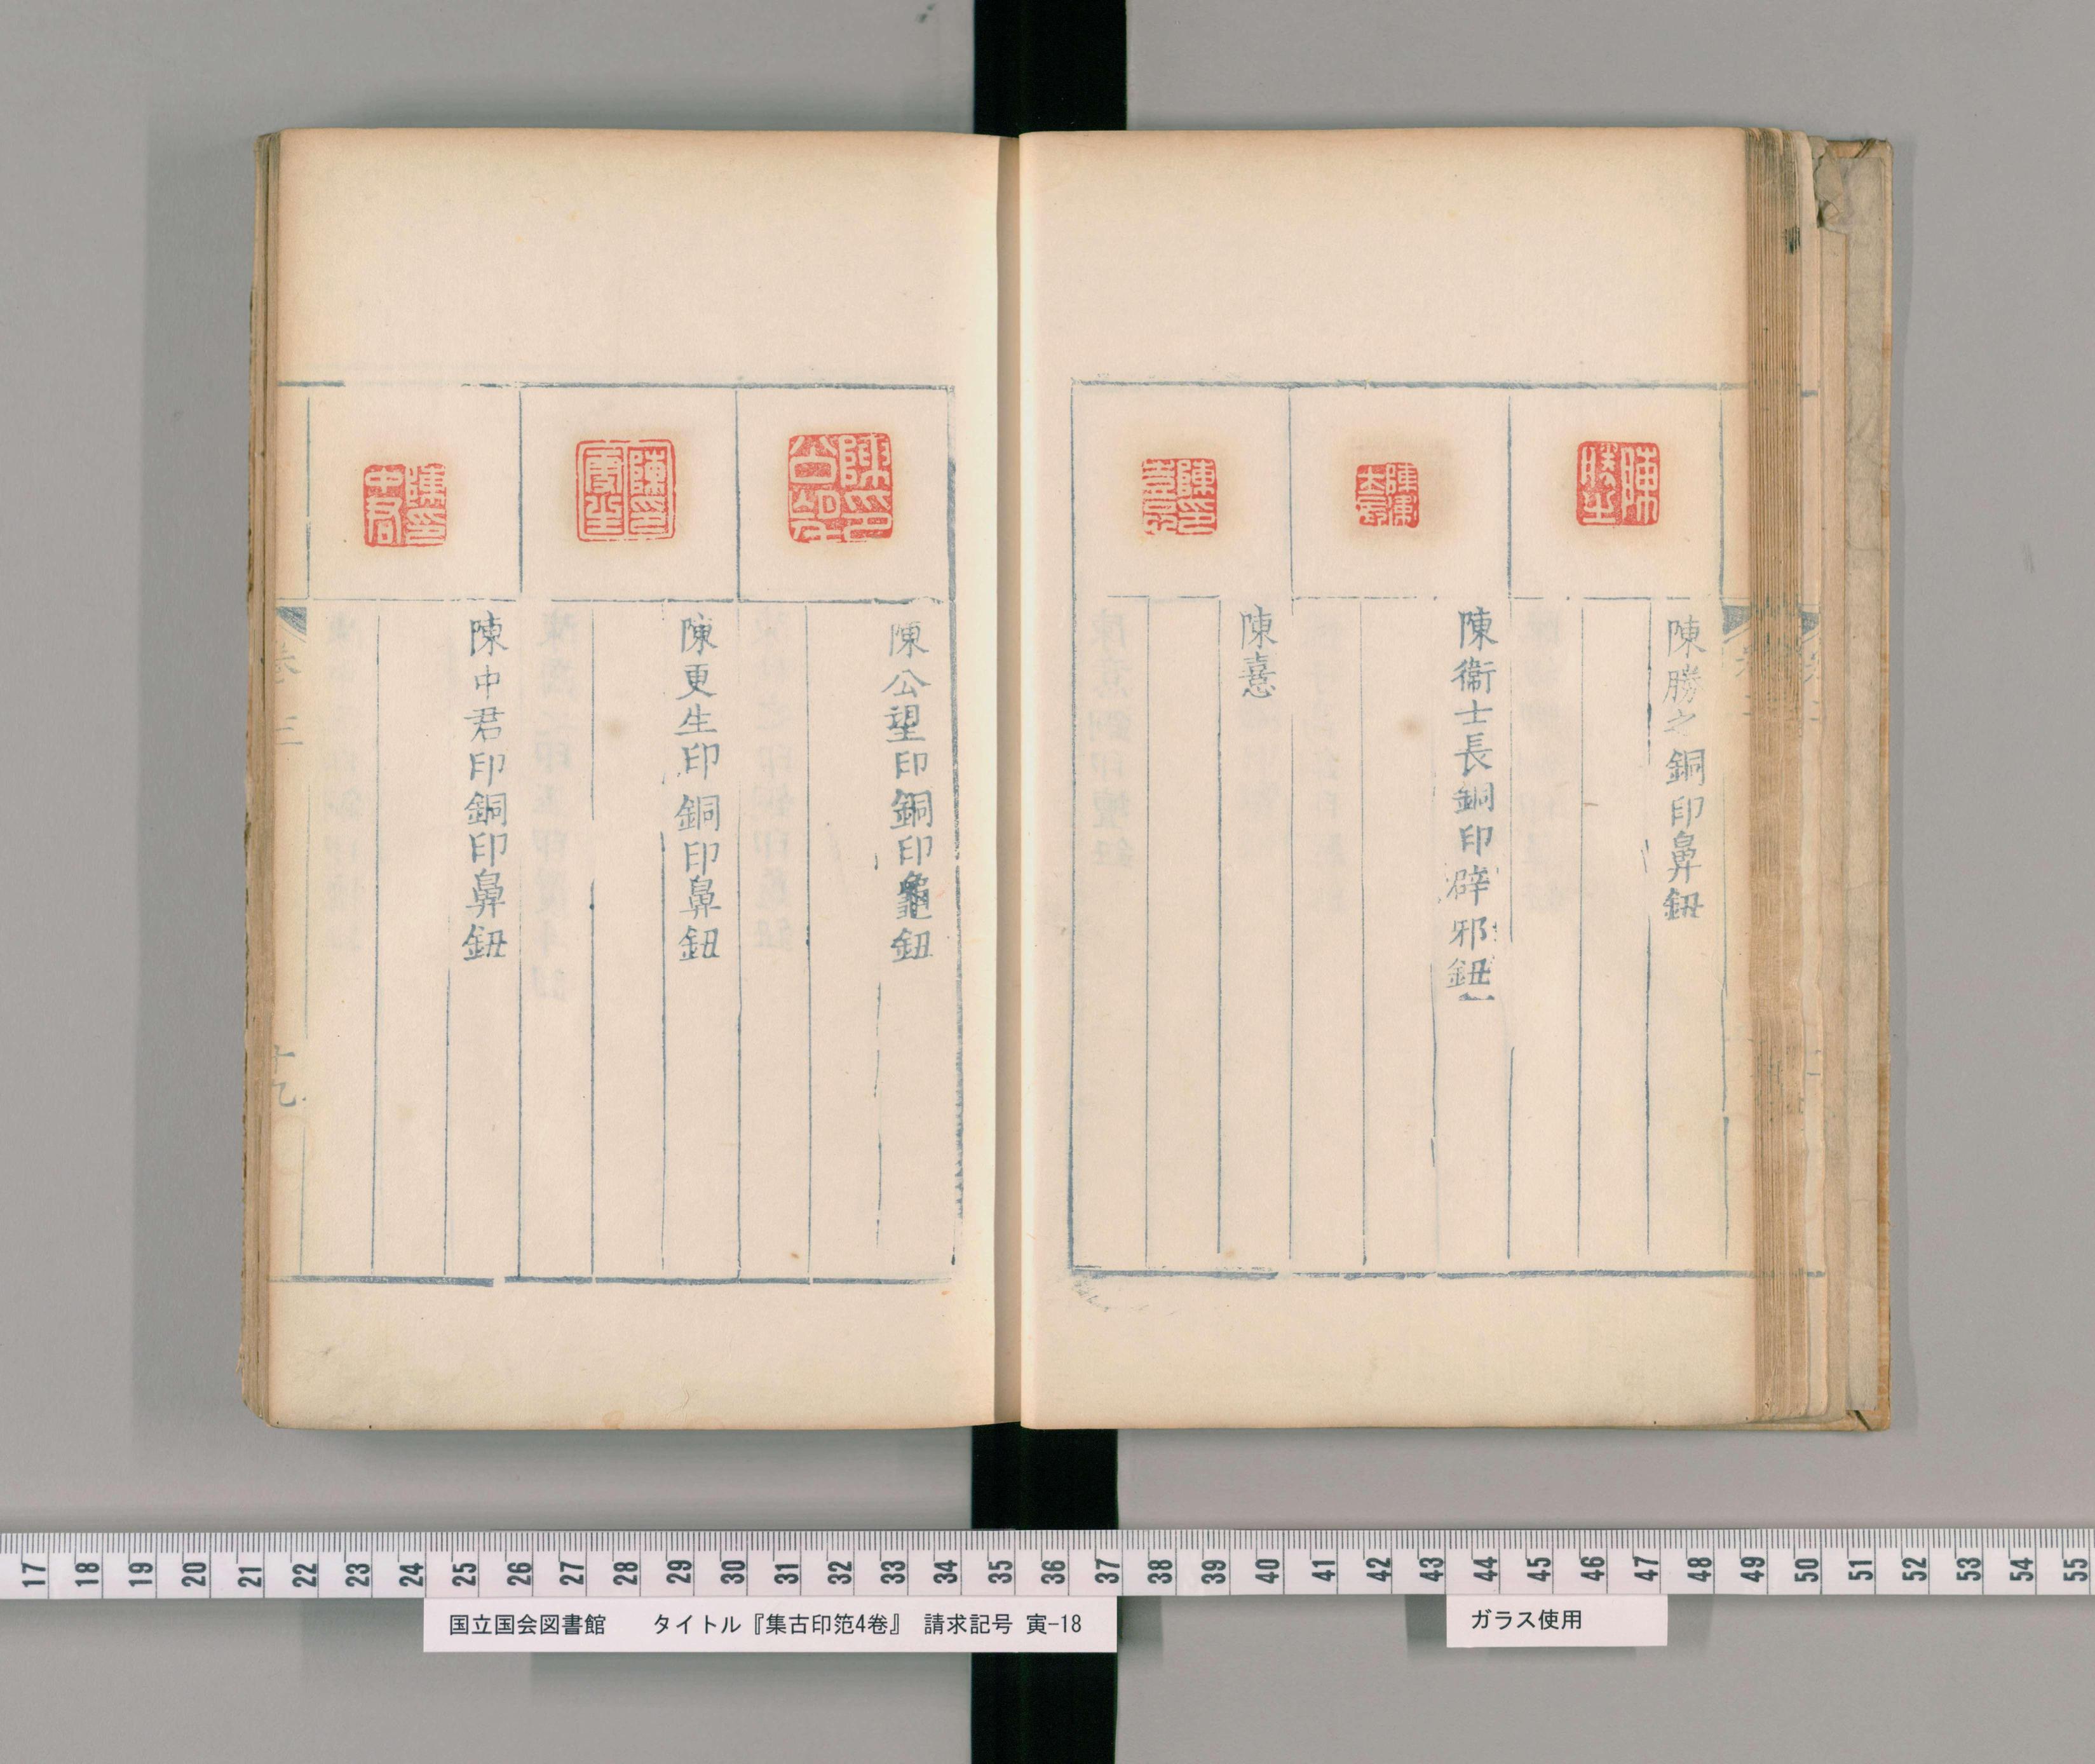 陳勝之銅印鼻鈕
陳衞士長銅印辟邪鈕
陳憙
陳公望印銅印龜鈕
陳更生印銅印鼻鈕
陳中君印銅印鼻鈕
卷三
十九
17 18 19 20 21 22 23 24 25 26 27 28 29 30 31 32 33 34 35 36 37 38 39 40 41 42 43 44 45 46 47 48 49 50 51 52 53 54 55
国立国会図書館 タイトル『集古印笵4巻』 請求記号 寅-18
ガラス使用